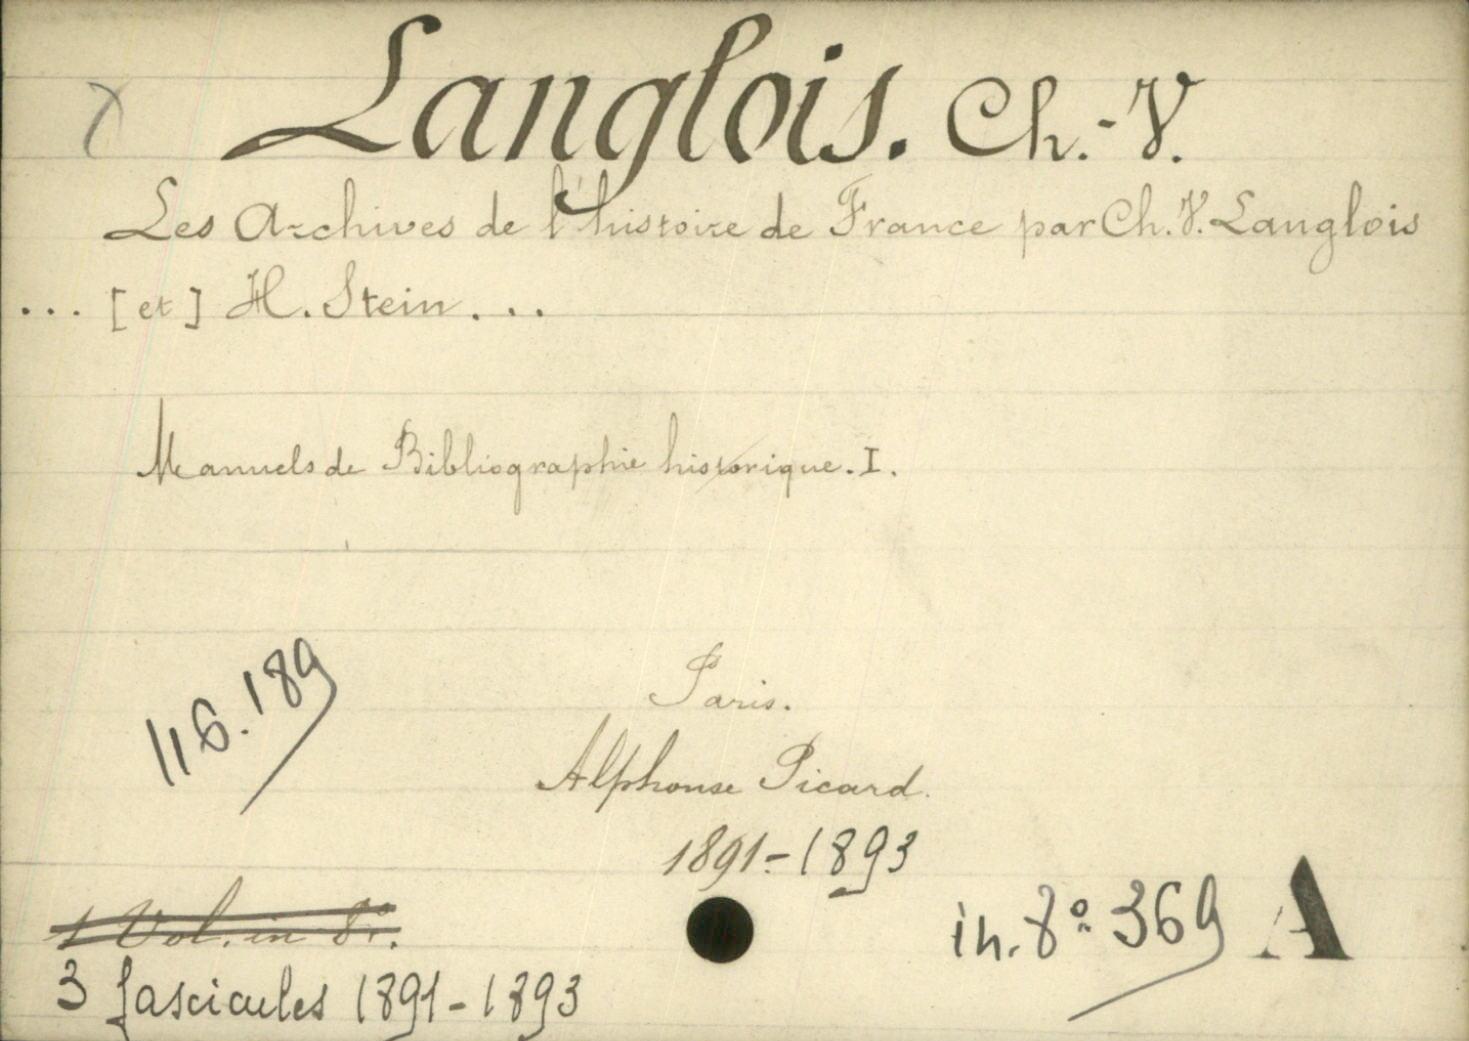 Langlois. Ch.-V.
Les Archives de l'histoire de France par Ch. V. Langlois
... [et] H. Stein...
Manuels de Bibliographie historique. I.
116.189
Paris.
Alphonse Picard.
1891-1893
1 Vol. in 8º.
in. 8º 369 A
3 fascicules 1891-1893